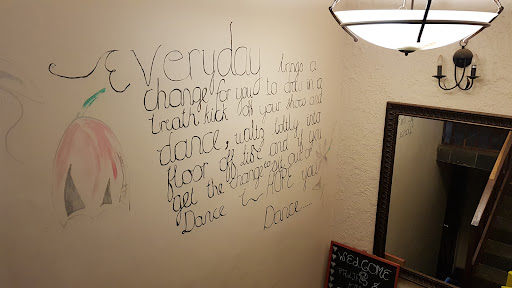 Everyday brings a
change for you to draw in a
breath kick off your show and
dance, waltz totally into
floor off life and if you
get the change to sit out or
Dance ~ HOPE you
Dance....
WELCOME